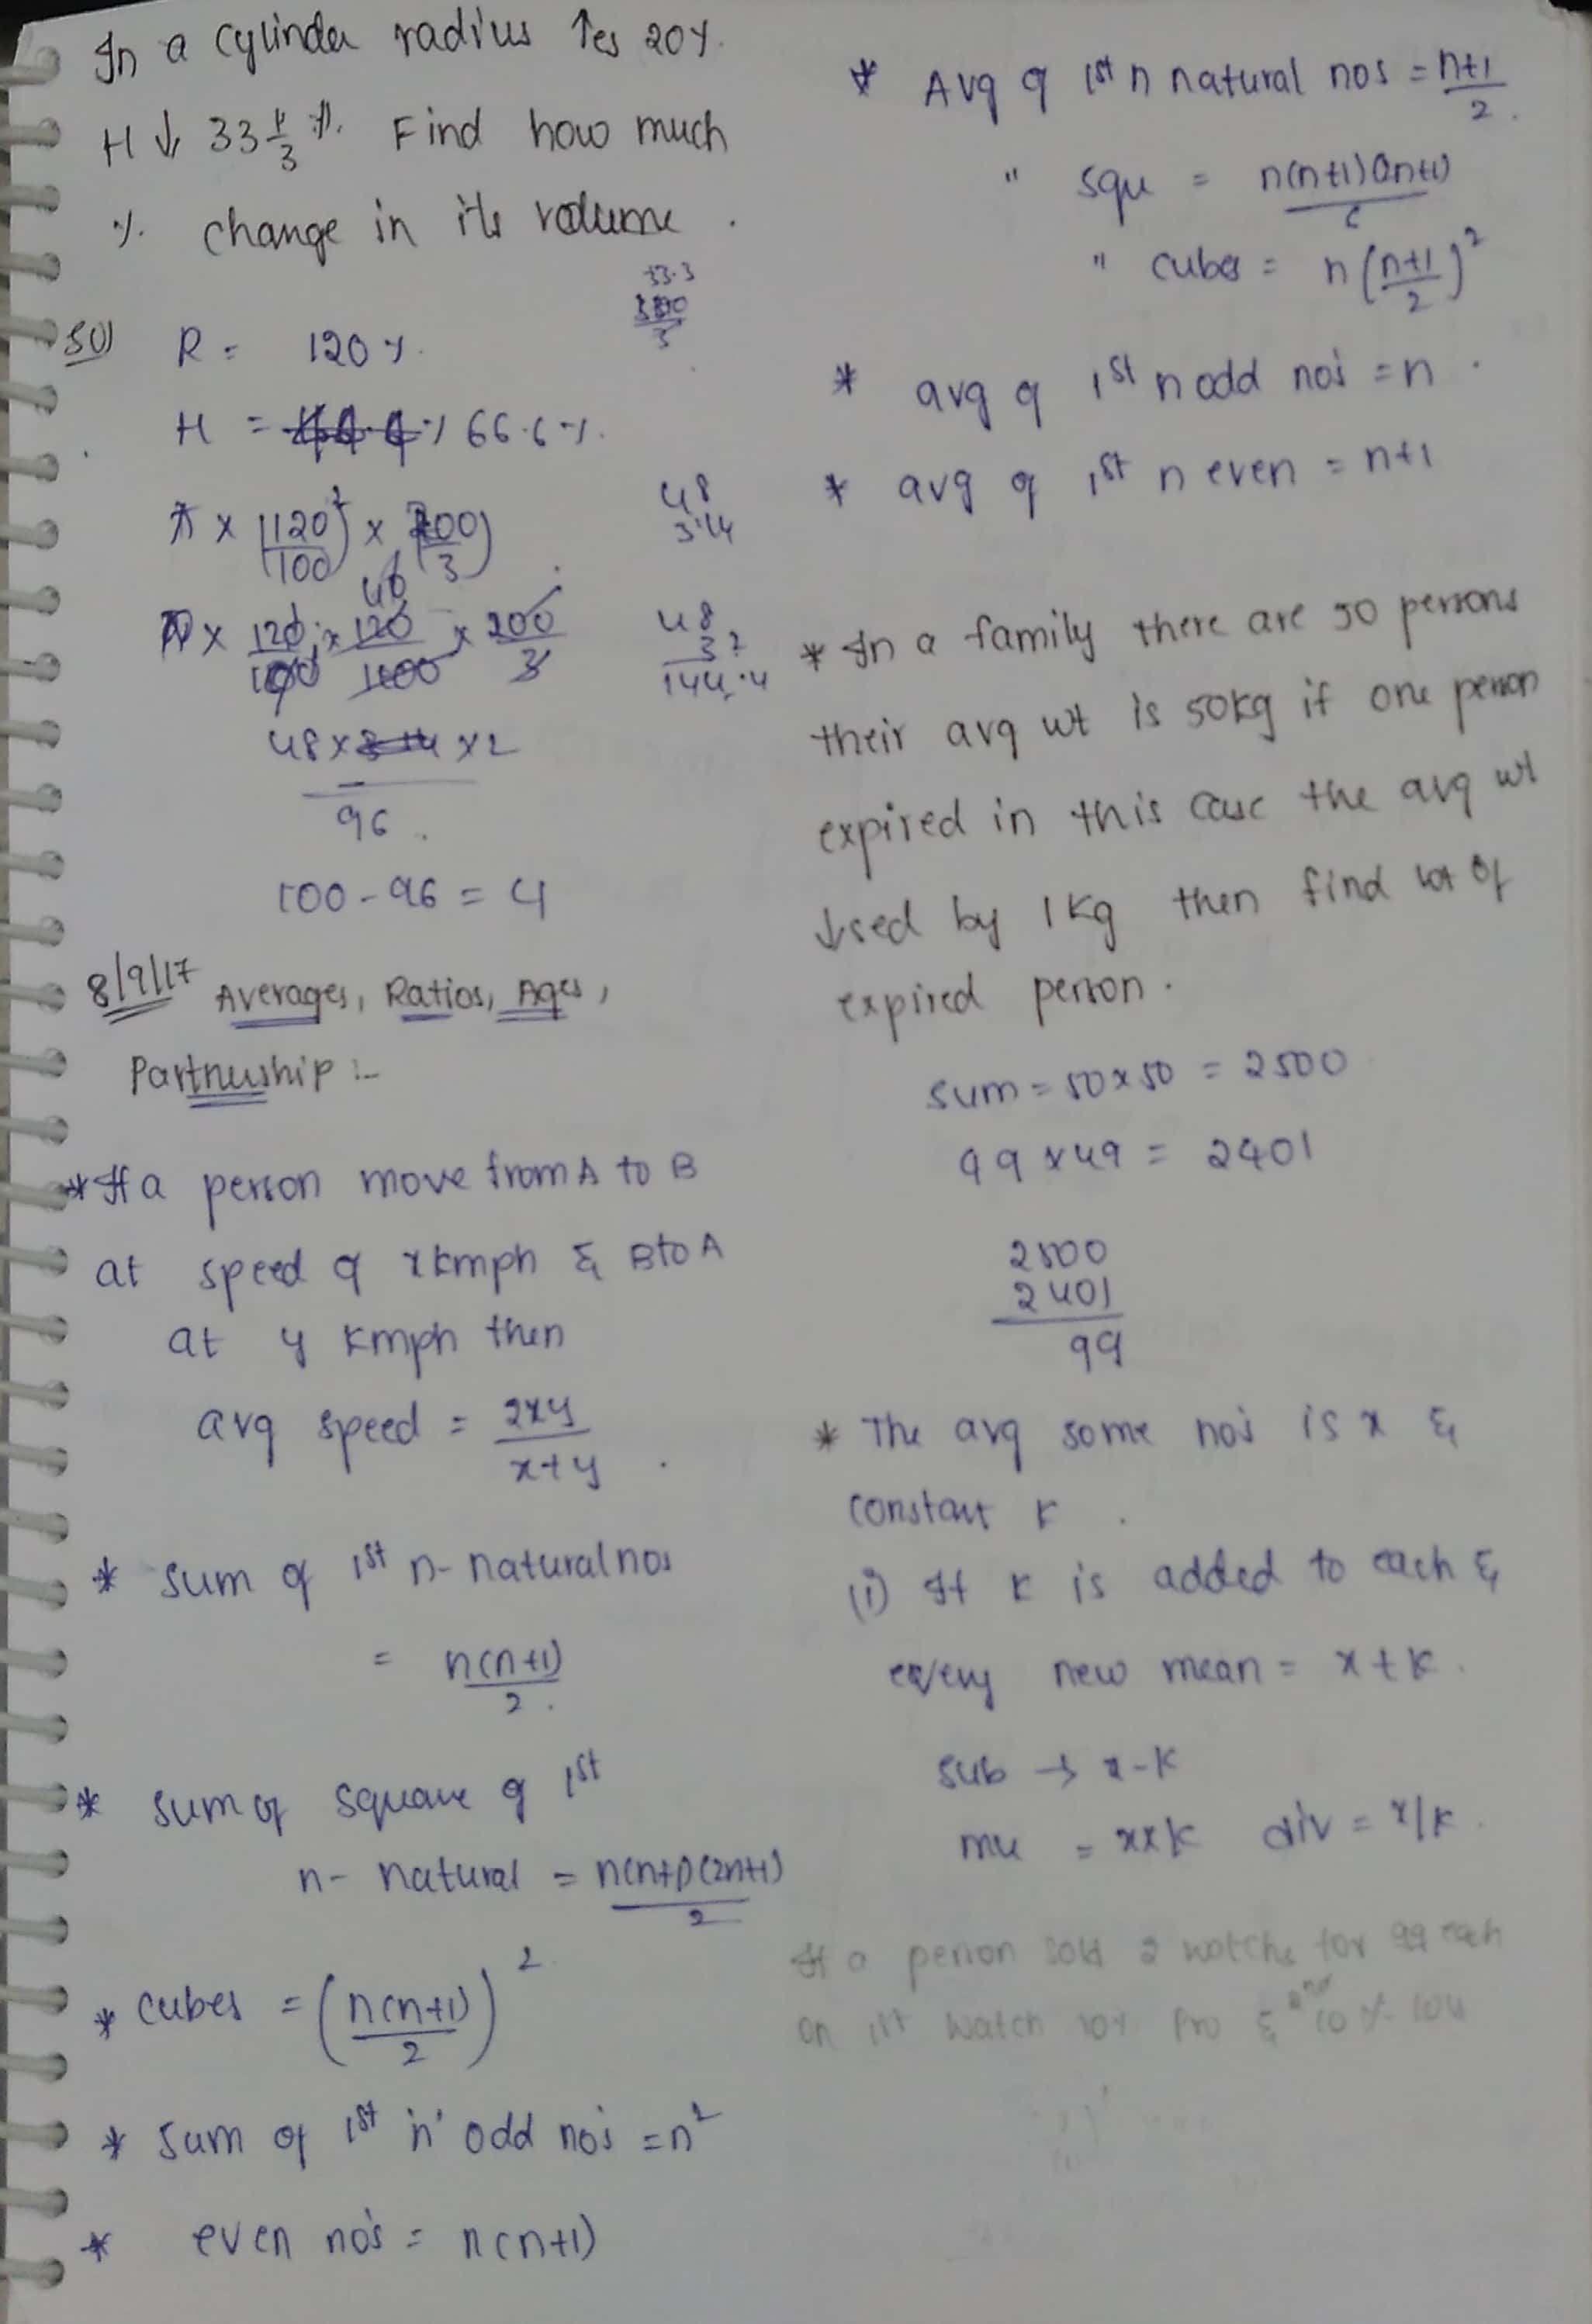 In a cylinder radius ↑es 20%.
H ↓ 33 1/3 %. Find how much
% change in its volume.
33.3
3
Sol) R = 120 %.
H = 66.6 %.
π × (120/100)² × (200/3)
π × 120/100 × 120/100 × 200/3
40
48
3.14
48
3
144.4
48 × 3.14 × 2
96.
100 - 96 = 4
8/9/17 Averages, Ratios, Ages,
Partnership :-
* If a person move from A to B
at speed of x kmph & B to A
at y kmph then
avg speed = 2xy/x+y .
* Sum of 1st n- natural nos
= n(n+1)/2.
* Sum of square of 1st
n- natural = n(n+1)(2n+1)/2
* Cubes = (n(n+1)/2)²
* Sum of 1st 'n' odd no's = n²
* even no's = n(n+1)
* Avg of 1st n natural nos = n+1/2.
" Squ = n(n+1)(2n+1)/6
" cubes = n(n+1/2)²
* avg of 1st n odd no's = n .
* avg of 1st n even = n+1
* In a family there are 50 persons
their avg wt is 50kg if one person
expired in this case the avg wt
↓sed by 1 Kg then find wt of
expired person.
Sum = 50 × 50 = 2500
49 × 49 = 2401
2500
2401
99
* The avg some no's is x &
constant K .
(i) If K is added to each &
every new mean = x + K .
Sub → x - K
mu = x×K div = x/K .
If a person sold 2 watchs for 99 each
on 1st watch 10% pro & 2nd 10 % loss